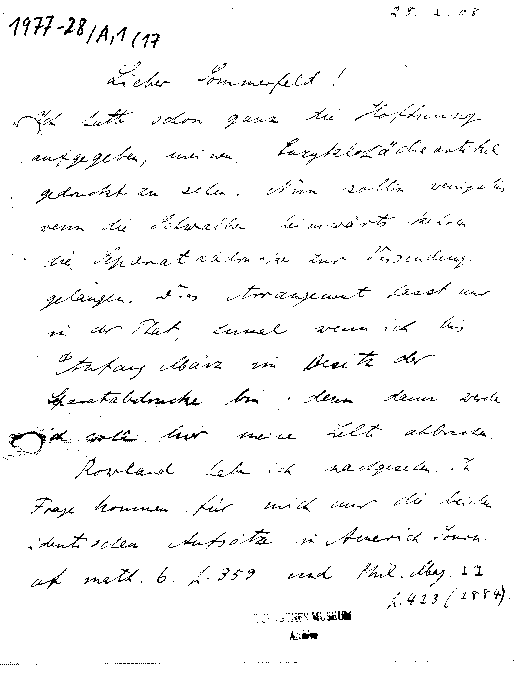 28. 2. 08
1977-28/A,1/17
Lieber Sommerfeld!
Ich hatte schon ganz die Hoffnung
aufgegeben, meinen Enzyklopädieartikel
gedruckt zu sehen. Nun sollen wenigstens
wenn die Schwalben heimwärts
die Separatabdrucke zur Versendung
gelangen. Dies Arrangement passt mir
in der Tat, zumal wenn ich bis
Anfang März im Besitz der
Separatabdrucke bin; denn dann werde
ich wohl hier meine Zelte abbrechen.
Rowland habe ich nachgesehen. In
Frage kommen für mich nur die beiden
identischen Aufsätze in Americ. Journ.
of math. 6. S. 359 und Phil. Mag. 17
S. 413 (1884).
DEUTSCHES MUSEUM
Archiv